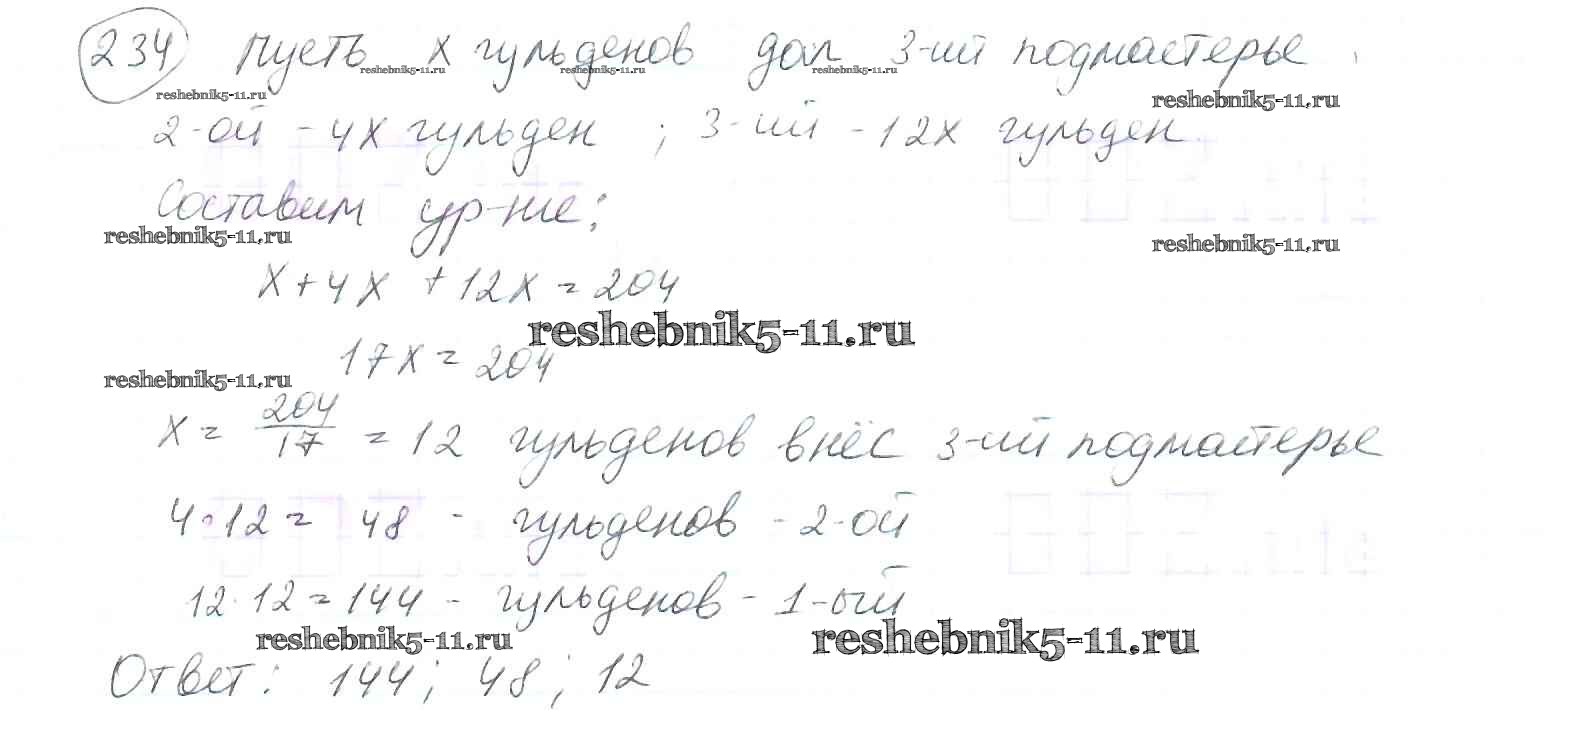 234 Пусть x гульденов дал 3-ий подмастерье
reshebnik5-11.ru reshebnik5-11.ru reshebnik5-11.ru
reshebnik5-11.ru reshebnik5-11.ru
2-ой - 4x гульден ; 3-ий - 12x гульден
Составим ур-ние:
reshebnik5-11.ru reshebnik5-11.ru
x + 4x + 12x = 204
reshebnik5-11.ru
17x = 204
reshebnik5-11.ru
x = 204/17 = 12 гульденов внёс 3-ий подмастерье
4·12 = 48 - гульденов - 2-ой
12·12 = 144 - гульденов - 1-ый
reshebnik5-11.ru reshebnik5-11.ru
Ответ: 144; 48; 12